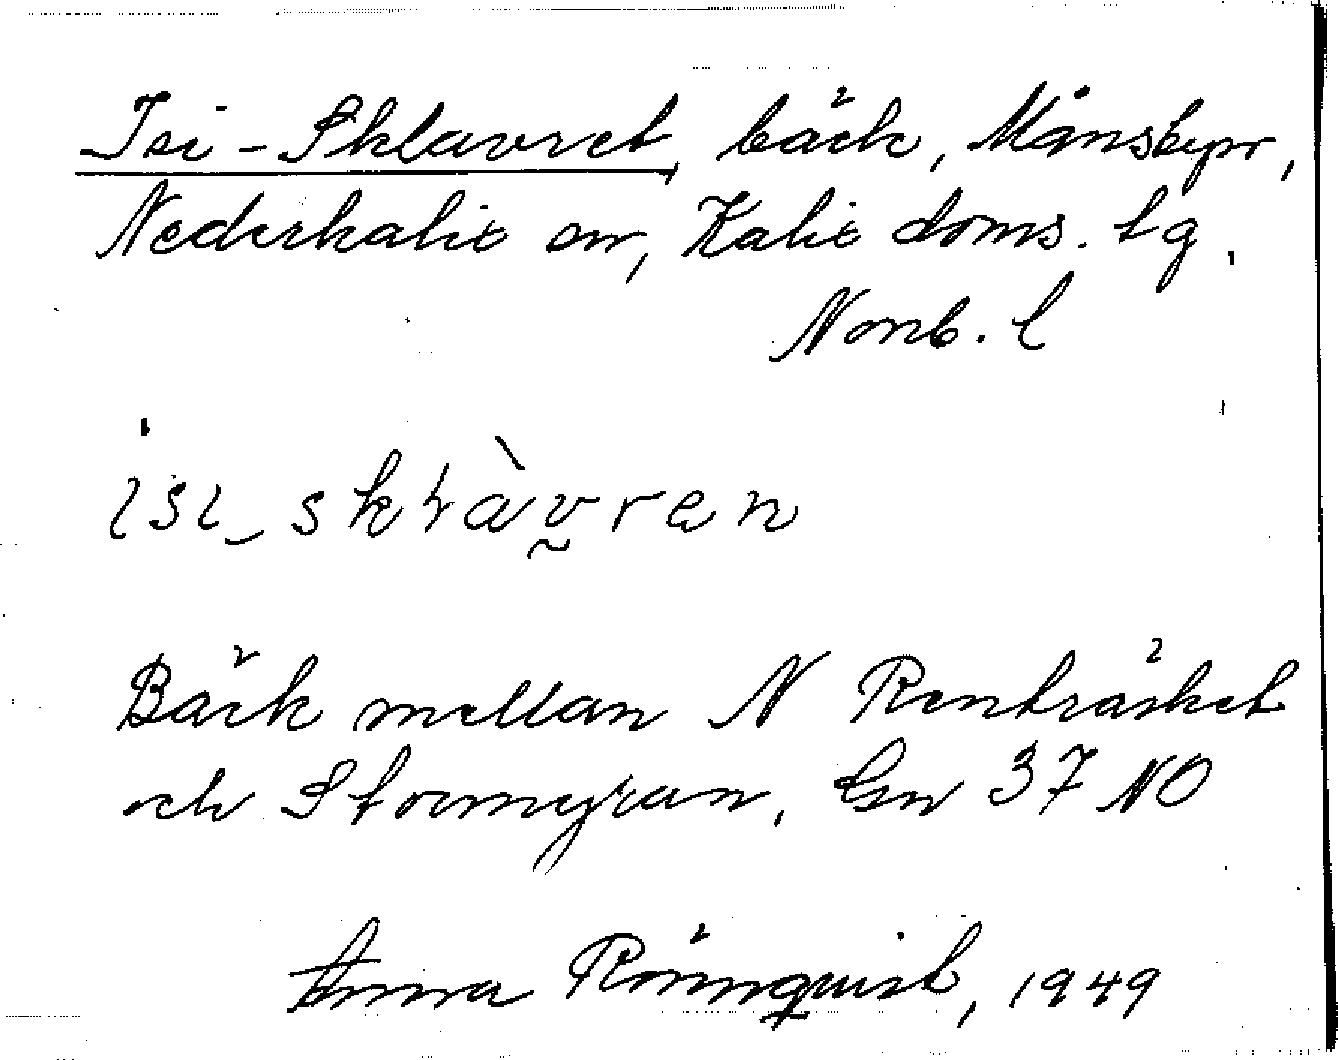 Isi-Sklavret, bäck, Månsbyn,
Nederkalix sn, Kalix doms. tg.
Norrb. l
isi_skràvren
Bäck mellan N Renträsket
och Stormyran, Gn 37 NO
Anna Rönnquist, 1949